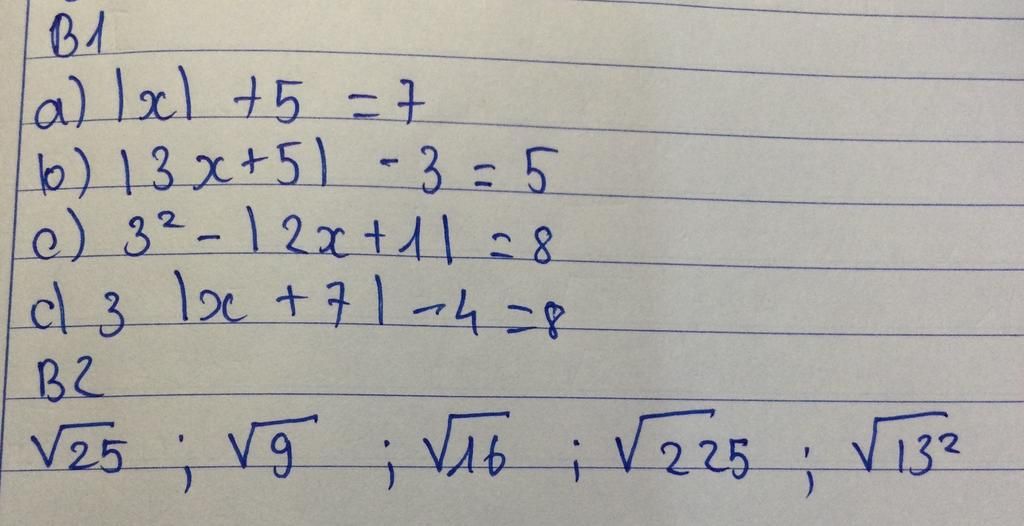 B1
a) |x| + 5 = 7
b) |3x + 5| - 3 = 5
c) 3² - |2x + 1| = 8
d) 3 |x + 7| - 4 = 8
B2
√25 ; √9 ; √16 ; √225 ; √13²